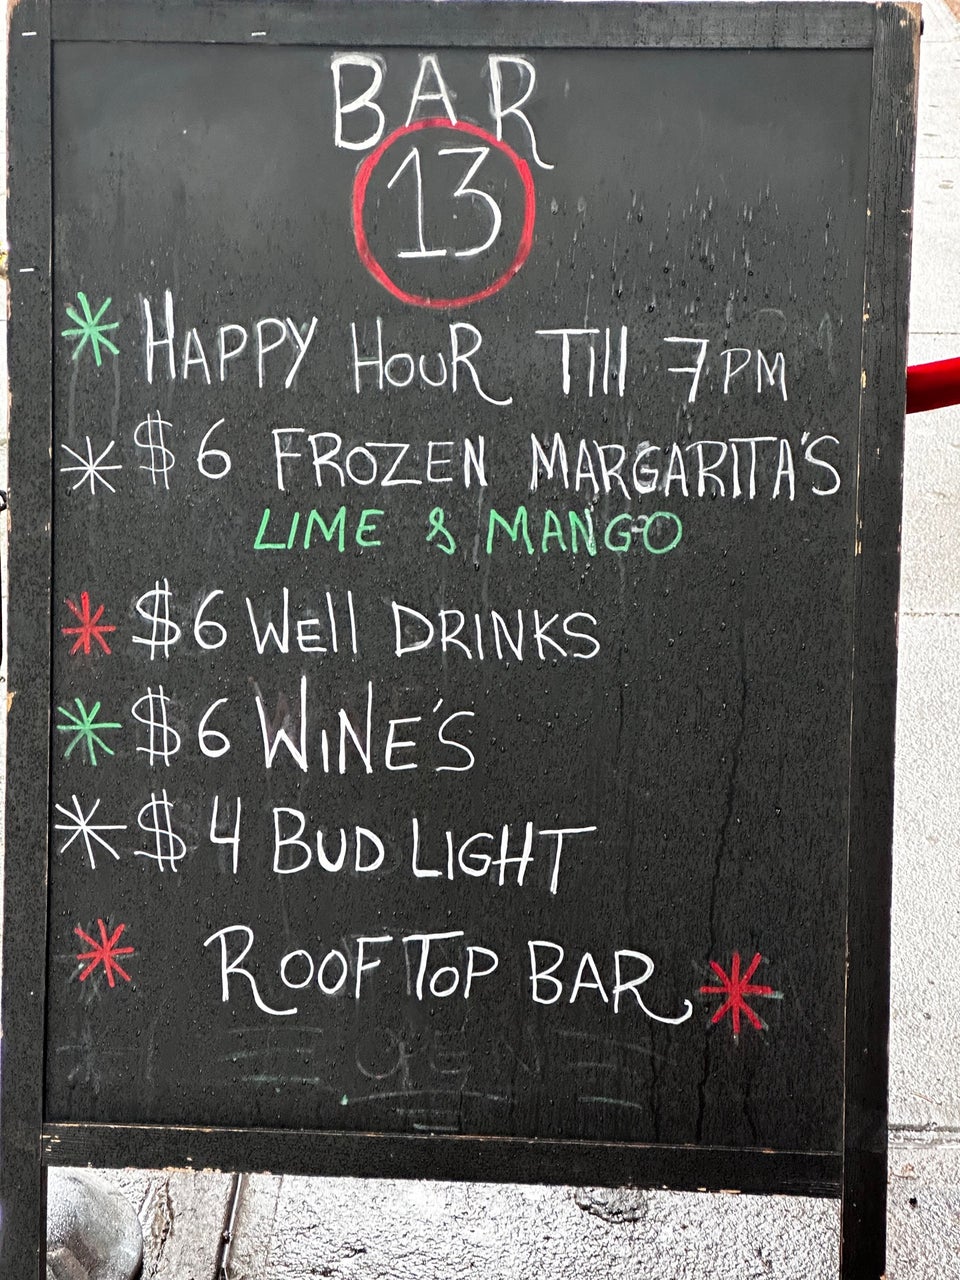 BAR
13
* HAPPY HOUR TIll 7PM
* $6 FROZEN MARGARITA'S
LIME & MANGO
* $6 WEll DRINKS
* $6 WINE'S
* $4 BUD LIGHT
* ROOF TOP BAR *
OPEN